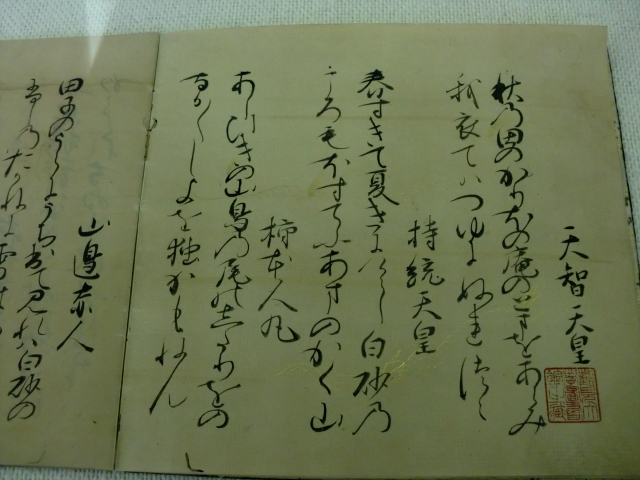 天智天皇
秋乃田のかりほの庵のとまをあらみ
我衣てハつゆにぬれつゝ
持統天皇
春すきて夏きにけらし白砂乃
ころもほすてふあまのかく山
柿本人丸
あし引きの山鳥乃尾のしたりをの
なか〱しよを独かもねん
山邊赤人
田子のうらにうち出て見れハ白砂の